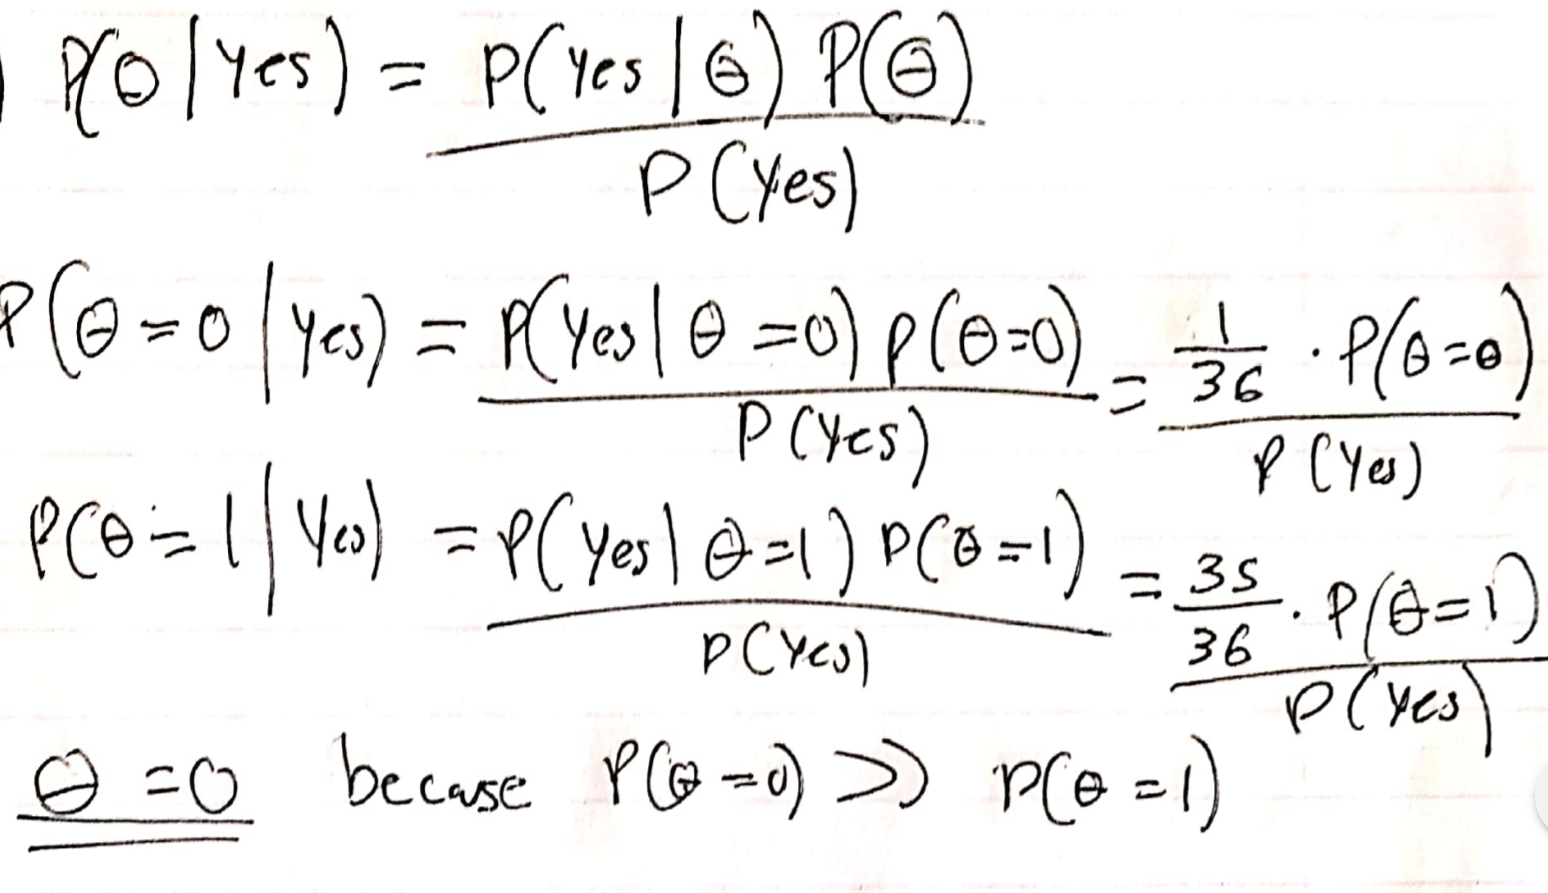 P(θ | Yes) = P(Yes | θ) P(θ)
P(Yes)
P(θ = 0 | Yes) = P(Yes | θ = 0) P(θ = 0) = 1/36 · P(θ = 0)
P(Yes) P(Yes)
P(θ = 1 | Yes) = P(Yes | θ = 1) P(θ = 1) = 35/36 · P(θ = 1)
P(Yes) P(Yes)
θ = 0 because P(θ = 0) >> P(θ = 1)